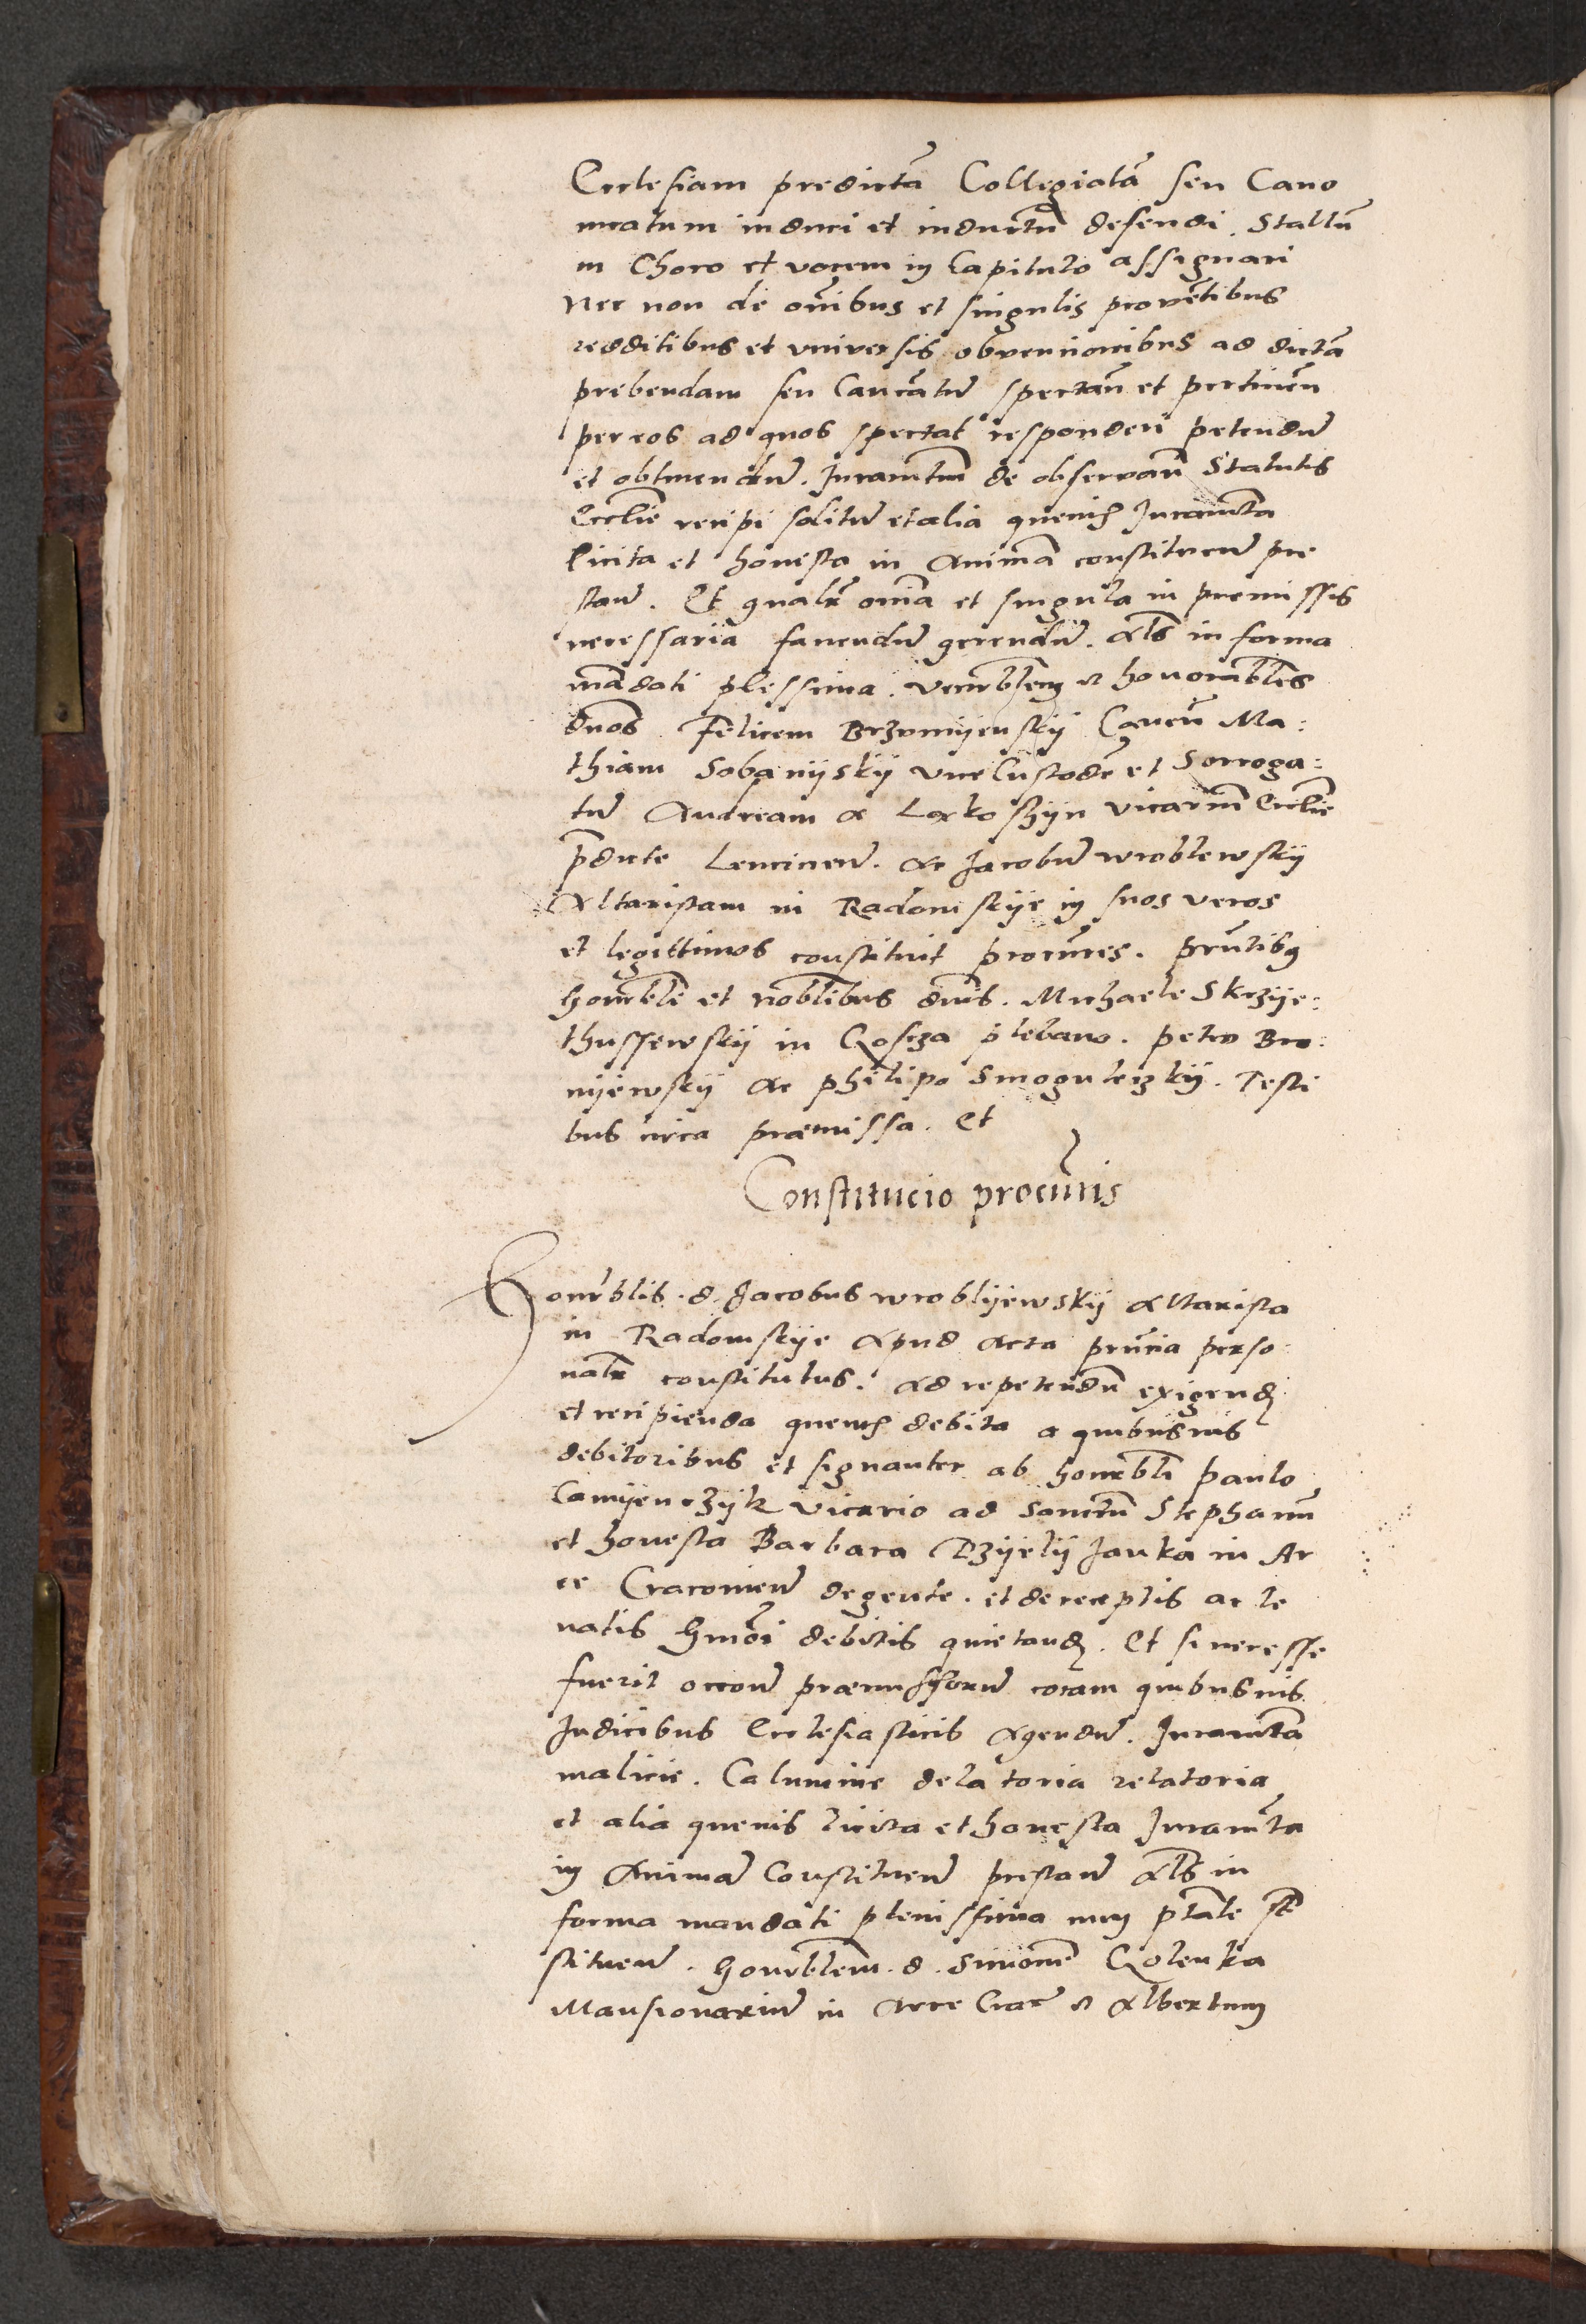 Ecclesiam predictā Collegiatā seu Cano
nicatum induci et inductū defendi. Stallū
in Choro et vocem in Capitulo assignari
Nec non de oīnibus et singulis provētibus
redditibus et vniversis obvencionibus ad dictā
prebendam seu Canc̄atū spectan̄ et pertinen̄
per eos ad quos spectat responderi petendū
et obtinendū. Juramtūm de observan̄ Statutis
Ecclīe recipi solitū et alia quevis Juramta
licita et honesta in Animā constituen̄ pre
stan̄. Et gnalr̄ oīnia et singula in premissis
necessaria faciendū gerendū. Als in forma
mādati plessima. venerblem et honorables
dnos Felicem Brzomyenskÿ Cancū Ma:
thiam Sobanÿskÿ vice Custodē et Sorroga:
tū Andream a Lexkoszÿn vicariūm Ecclīe
p̄dicte Lencicien̄. Ac Jacobū wroblewskÿ
Altaristam in Radomskÿe in suos veros
et legittimos constituit procures. Pr̄ntibus
honrble et noblibus dnis. Michaele Skrzÿe:
thussewskÿ in Qoscza plebano. petro Bro:
nÿewskÿ Ac philipo Smoguleczkÿ. Testi
bus circa præmissa. Et
Constitucio procūris
Honrblis. d. Jacobus wroblÿewskÿ Altarista
in Radomskÿe Apud Acta pr̄ncia perso:
nalr̄ constitutus. Ad repetendū exigend
et recipienda quevis debita a quibusvis
debitoribus et signanter ab honrbli paulo
Camÿenczÿk vicario ad Sanctū Stephanū
et honesta Barbara Dzÿelÿ Janka in Ar
ce Cracovien̄ degente. et de receptis ac le
vatis hm̄oi debitis quietand. Et si necesse
fuerit occone præmissorū coram quibusvis
Judicibus Ecclesiasticis Agendū. Juramta
malicie. Calumnie delatoria relatoria
et alia quevis licita et honesta Juramta
in Animā Constituen̄ prestan̄ Als in
forma mandati plenissima cum ptāte sb
stituen̄. honrblem. d. Simonē Qolenka
Mansionariū in Arce Crac̄ et Albertum